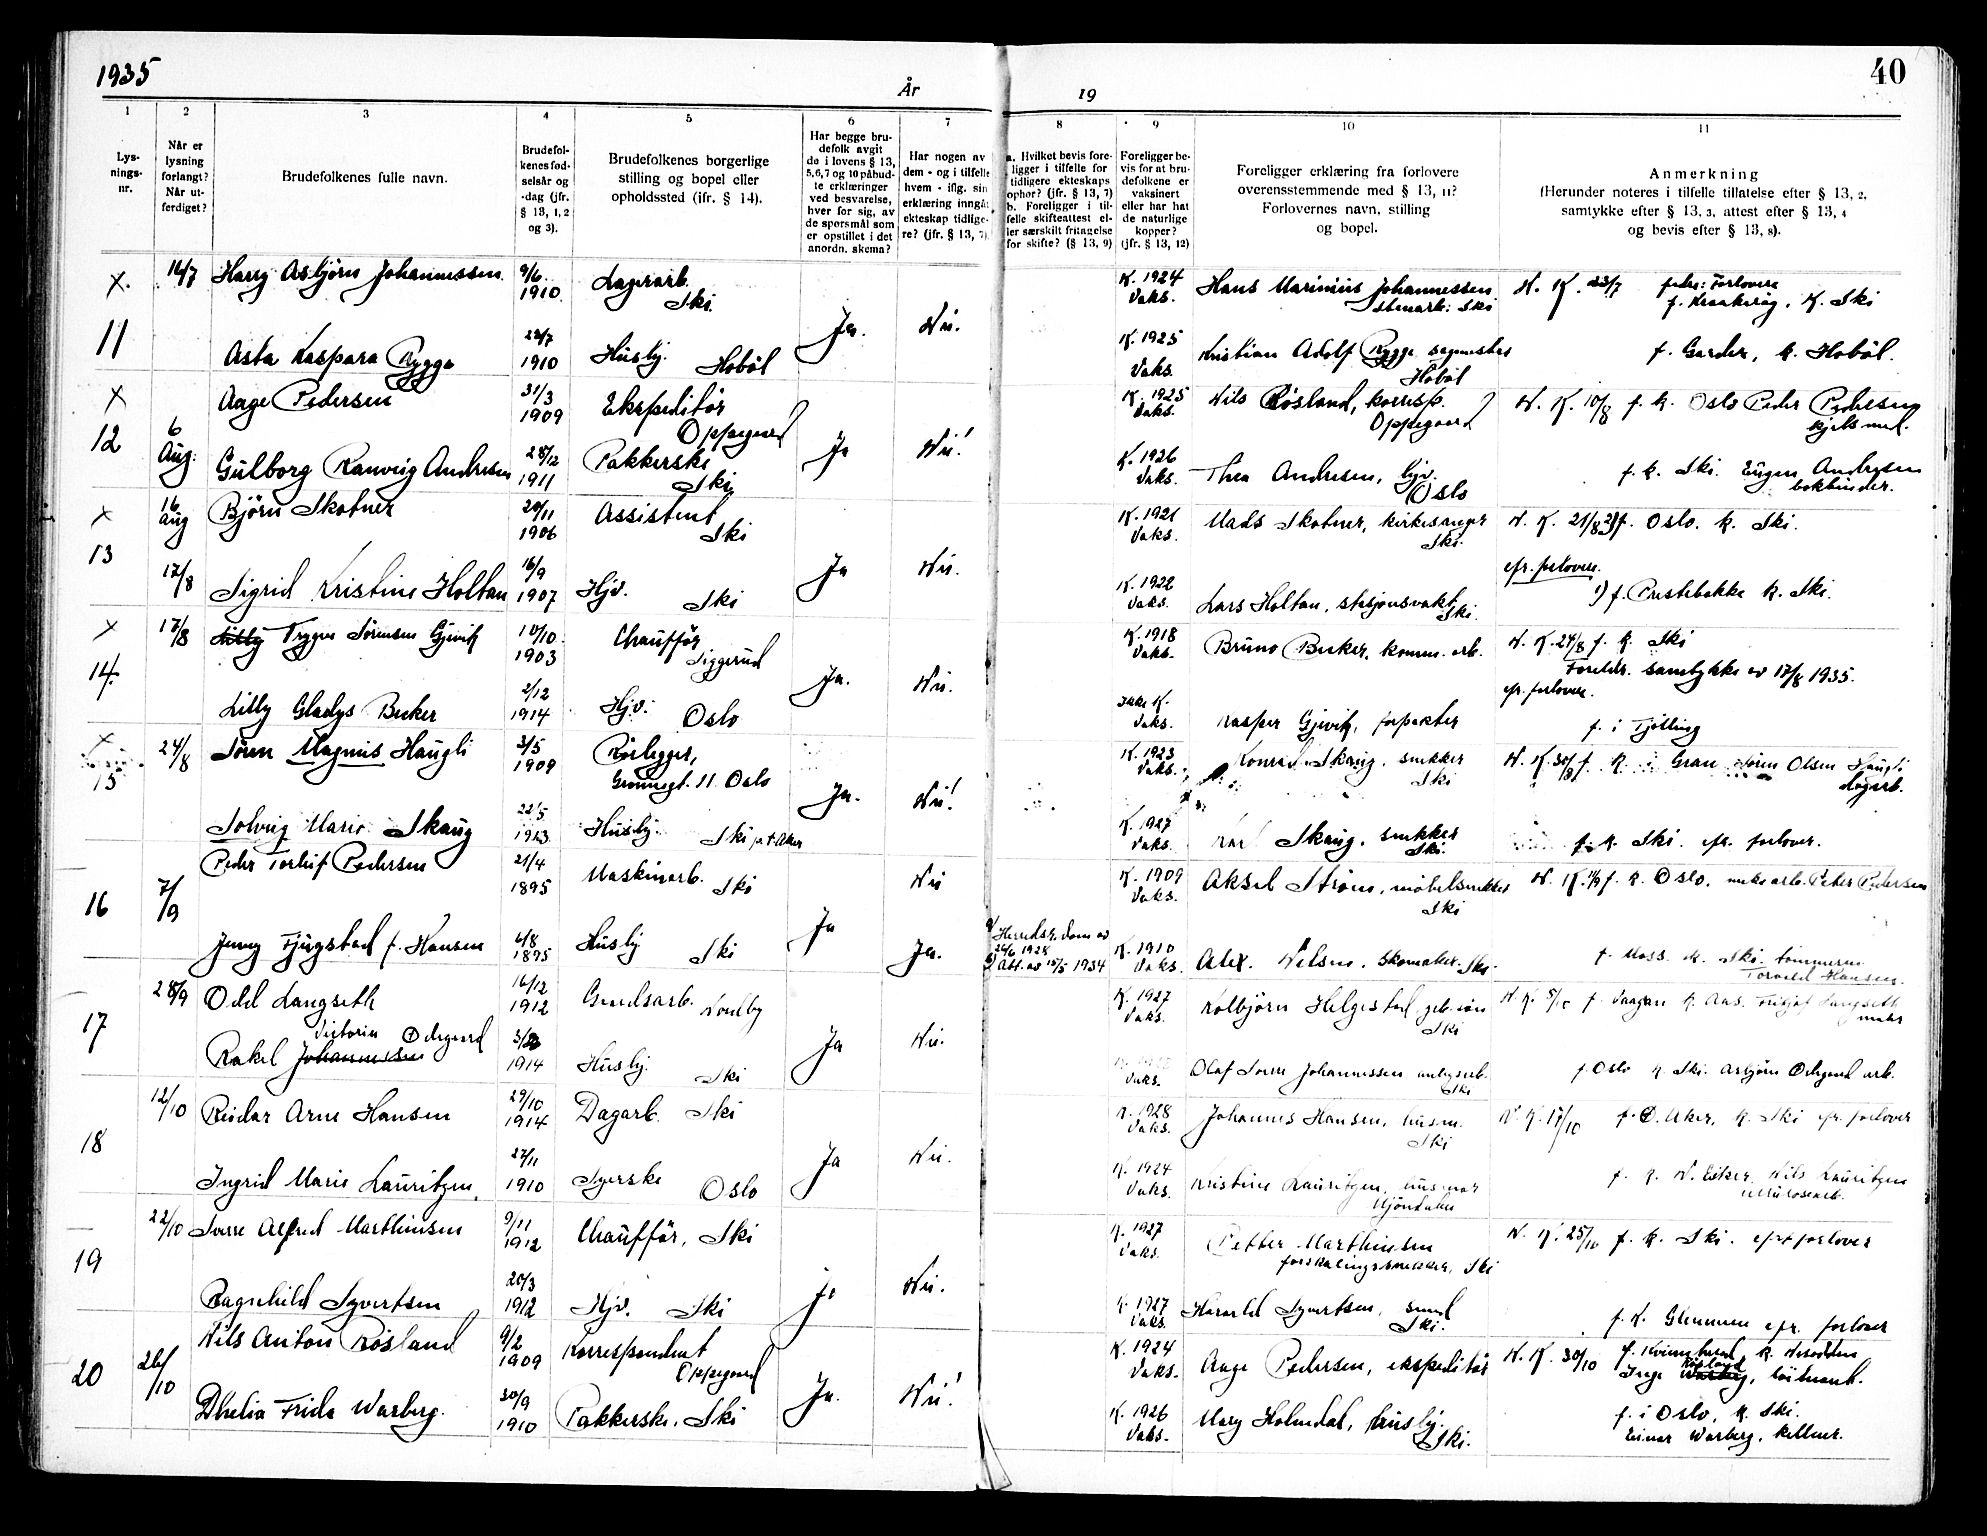 1935
År
19
40
1
2
3
4
5
6
7
8
9
10
11
Lys-
nings-
nr.
Når er
lysning
forlangt?
Når ut-
ferdiget?
Brudefolkenes fulle navn.
Brudefol-
kenes fød-
selsår og
-dag (jfr.
§ 13, 1, 2
og 3).
Brudefolkenes borgerlige
stilling og bopel eller
opholdssted (jfr. § 14).
Har begge bru-
defolk avgit
de i lovens § 13,
5,6,7 og 10 påbud-
te erklæringer
ved besvarelse,
hver for sig, av
de spørsmål som
er opstillet i det
anordn. skema?
Har nogen av
dem - og i tilfelle
hvem - iflg. sin
erklæring inngåt
ekteskap tidlige-
re? (jfr. § 13, 7)
a. Hvilket bevis fore-
ligger i tilfelle for
tidligere ekteskaps
ophør? (jfr. § 13, 7)
b. Foreligger i til-
felle skifteattest el-
ler særskilt fritagelse
for skifte? (§ 13, 9)
Foreligger be-
vis for at bru-
defolkene er
vaksinert
eller har hat
de naturlige
kopper?
(jfr. § 13, 12)
Foreligger erklæring fra forlovere
overensstemmende med § 13, 11?
Forlovernes navn, stilling
og bopel.
Anmerkning
(Herunder noteres i tilfelle tillatelse efter § 13, 2,
samtykke efter § 13, 3, attest efter § 13, 4
og bevis efter § 13, 8).
x. 14/7 Harry Asbjørn Johannessen 9/6 1910. Lagerarb. Ski. K. 1924 Vaks. Hans Marinius Johannessen Ski N. K. 23/7 f. Kraakerøy, K. Ski
11 Ja. Nei.
Asta Kaspara Rygge 1910 Husbj. Hobøl K. 1925 Vaks. Kristian Adolf Rygge Hobøl f. Garder, K. Hobøl.
x Aage Pedersen 31/3 1909 Ekspeditør Oppegaard K. 1925 Vaks. Nils Røsland, korresp. Oppegaard N. K. 10/8 f. K. Oslo Peder Pedersen
12 6 Aug. Ja Nei!
Gulborg Ranveig Andresen 28/12 1911 Pakkerske Ski K. 1926 Vaks. Thea Andresen, hjv. Oslo f. K. Ski. Eugen Andresen bokbinder.
x 16 aug Bjørn Skotner 20/11 1906 Assistent Ski K. 1921 Vaks. Mads Skotner, kirkesanger Ski. N. K. 21/8 f. Oslo. K. Ski.
13 Ja Nei.
17/8 Sigrid Kristine Holtan 16/9 1907 Hjv. Ski K. 1922 Vaks. Lars Holtan, stasjonsvakt, Ski. efr. forlovere. 1) f. Prestebakke K. Ski.
x 17/8 Trygve Sørensen Gjevik 10/10. 1903 Chauffør Siggerud K. 1918 Vaks. Bruno Becker, komm. arb. N. K. 24/8 f. K. Ski
14. Ja. Nei! Foreldr. samtykke av 17/8 1935. efr. forlover.
Lilly Gladys Becker 2/12 1914 Hjv. Oslo Ikke K. Vaks. Kasper Gjevik, forpakter f. i Tjølling
x 24/8 Søren Magnus Haugli 3/5 1909 Rørlegger, Grønnegt. 11 Oslo K. 1923 Vaks. Konrad Skaug, snekker Ski N. K. 30/8 f. K. i Gran Søren Olsen Haugli dagarb.
15 Ja. Nei!
Solveig Marie Skaug 22/5 1913 Husbj. Ski p.t. Aker K. 1927 Vaks. Karl Skaug, snekker Ski. f. K. Ski. efr. forlover.
Peder Torleif Pedersen 21/4 1895 Maskinarb. Ski Nei K. 1909 Vaks. Aksel Strøm, møbelsnekker Ski f. K. Oslo. Peter Pedersen
16 7/9 Ja
Jenny Fjugstad f. Hansen 6/8 1895 Husbj Ski Ja. a) Herredsr. dom av 26/6 1928 b) Att. av 15/5 1934 K. 1910 Vaks. Alex. Nilsen, skomaker. Ski. f. Moss. K. Ski. tømmerm. Torvald Hansen.
28/9 Odd Langseth 16/12 1912 Grindsarb. Nordby K. 1927 Vaks. Kolbjørn Helgestad, Ski N. K. 5/10 f. Vaagan K. Aas. Fridtjof Langseth maler
17 Ja Nei.
Rakel Victoria Ødegaard Johannessen 1914 Husbj. Ski Vaks. Olaf Johannessen Ski f. Oslo K. Ski. Asbjørn Ødegaard arb.
12/10 Reidar Arne Hansen 29/10 1914 Dagarb. Ski K. 1928 Vaks. Johannes Hansen, husm. Ski N. K. 17/10 f. Ø. Aker, K. Ski efr. forlover
18 Ja Nei.
Ingrid Marie Lauritzen. 27/11 1910 Syerske Oslo K. 1924 Vaks. Kristine Lauritzen, Mjøndalen f. K. N. Eiker. Nils Lauritzen
22/10 Sverre Alfred Marthinsen 9/11 1912 Chauffør, Ski K. 1927 Vaks. Petter Marthinsen forskalingssnekker, Ski N. K. 25/10 f. K. Ski. efr forlover
19 Ja Nei.
Ragnhild Syvertsen 20/3 1912 Hjv. Ski K. 1927 Vaks. Harald Syvertsen, smed Ski. f. K. Glemmen efr. forlover
Nils Anton Røsland 9/2 1909 Korrespondent Oppegaard K. 1924 Vaks. Aage Pedersen, ekspeditør N. K. 30/10 f. Kvinesherad K. Nesodden Inge Røsland Warberg, løitnant.
20 26/10 Ja. Nei!
Dhelia Frida Warberg. 30/9 1910 Pakkerske, Ski K. 1926 Vaks. Mary Holmdal, husbj. Ski. f. i Oslo, K. Ski. Einar Warberg, kellner.